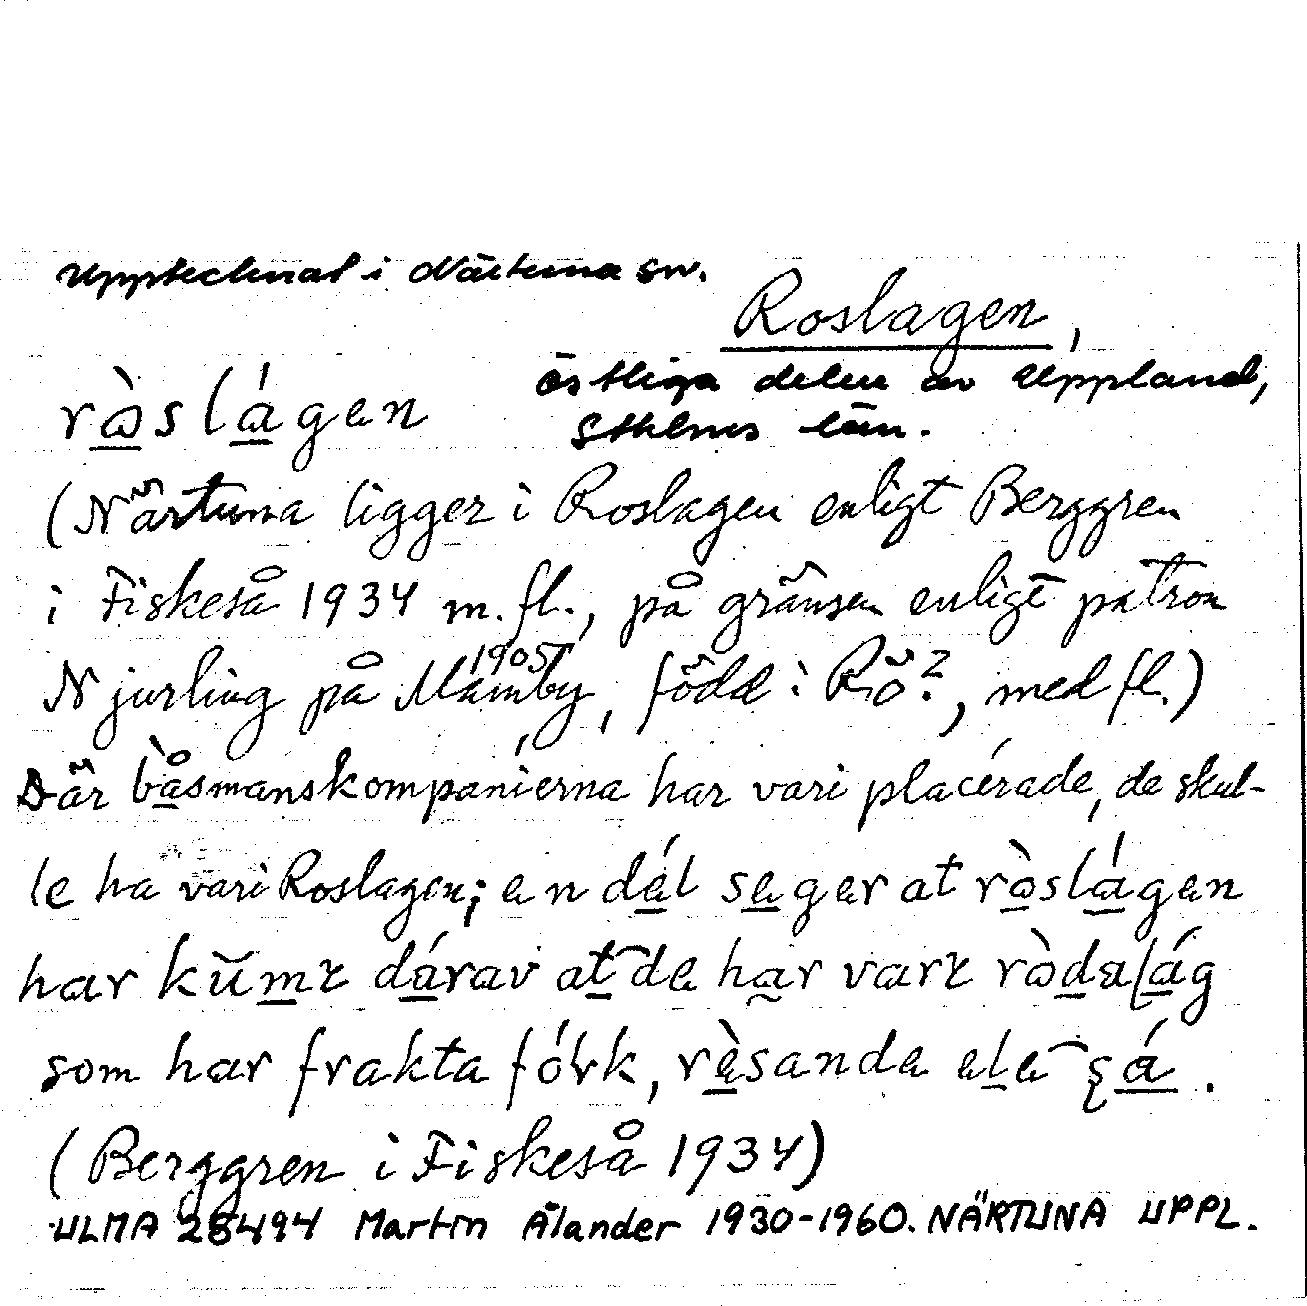 Upptecknat i Närtuna sn.
Roslagen,
östliga delen av Uppland,
Sthlms län.
ròslágen
(Närtuna ligger i Roslagen enligt Berggren
i Fiskeså 1934 m.fl., på gränsen enligt patron
Njurling på Mamby 1905, född i Rö?, med fl.)
Där båsmanskompanierna har vari placérade, de skul-
le ha vari Roslagen; en dél seger at ròslágen
har kumɪ dárav at de har varɪ ròdelág
som har frakta fólk, rèsande ele sá.
(Berggren i Fiskeså 1934)
ULMA 28494 Martin Ålander 1930-1960. NÄRTUNA UPPL.